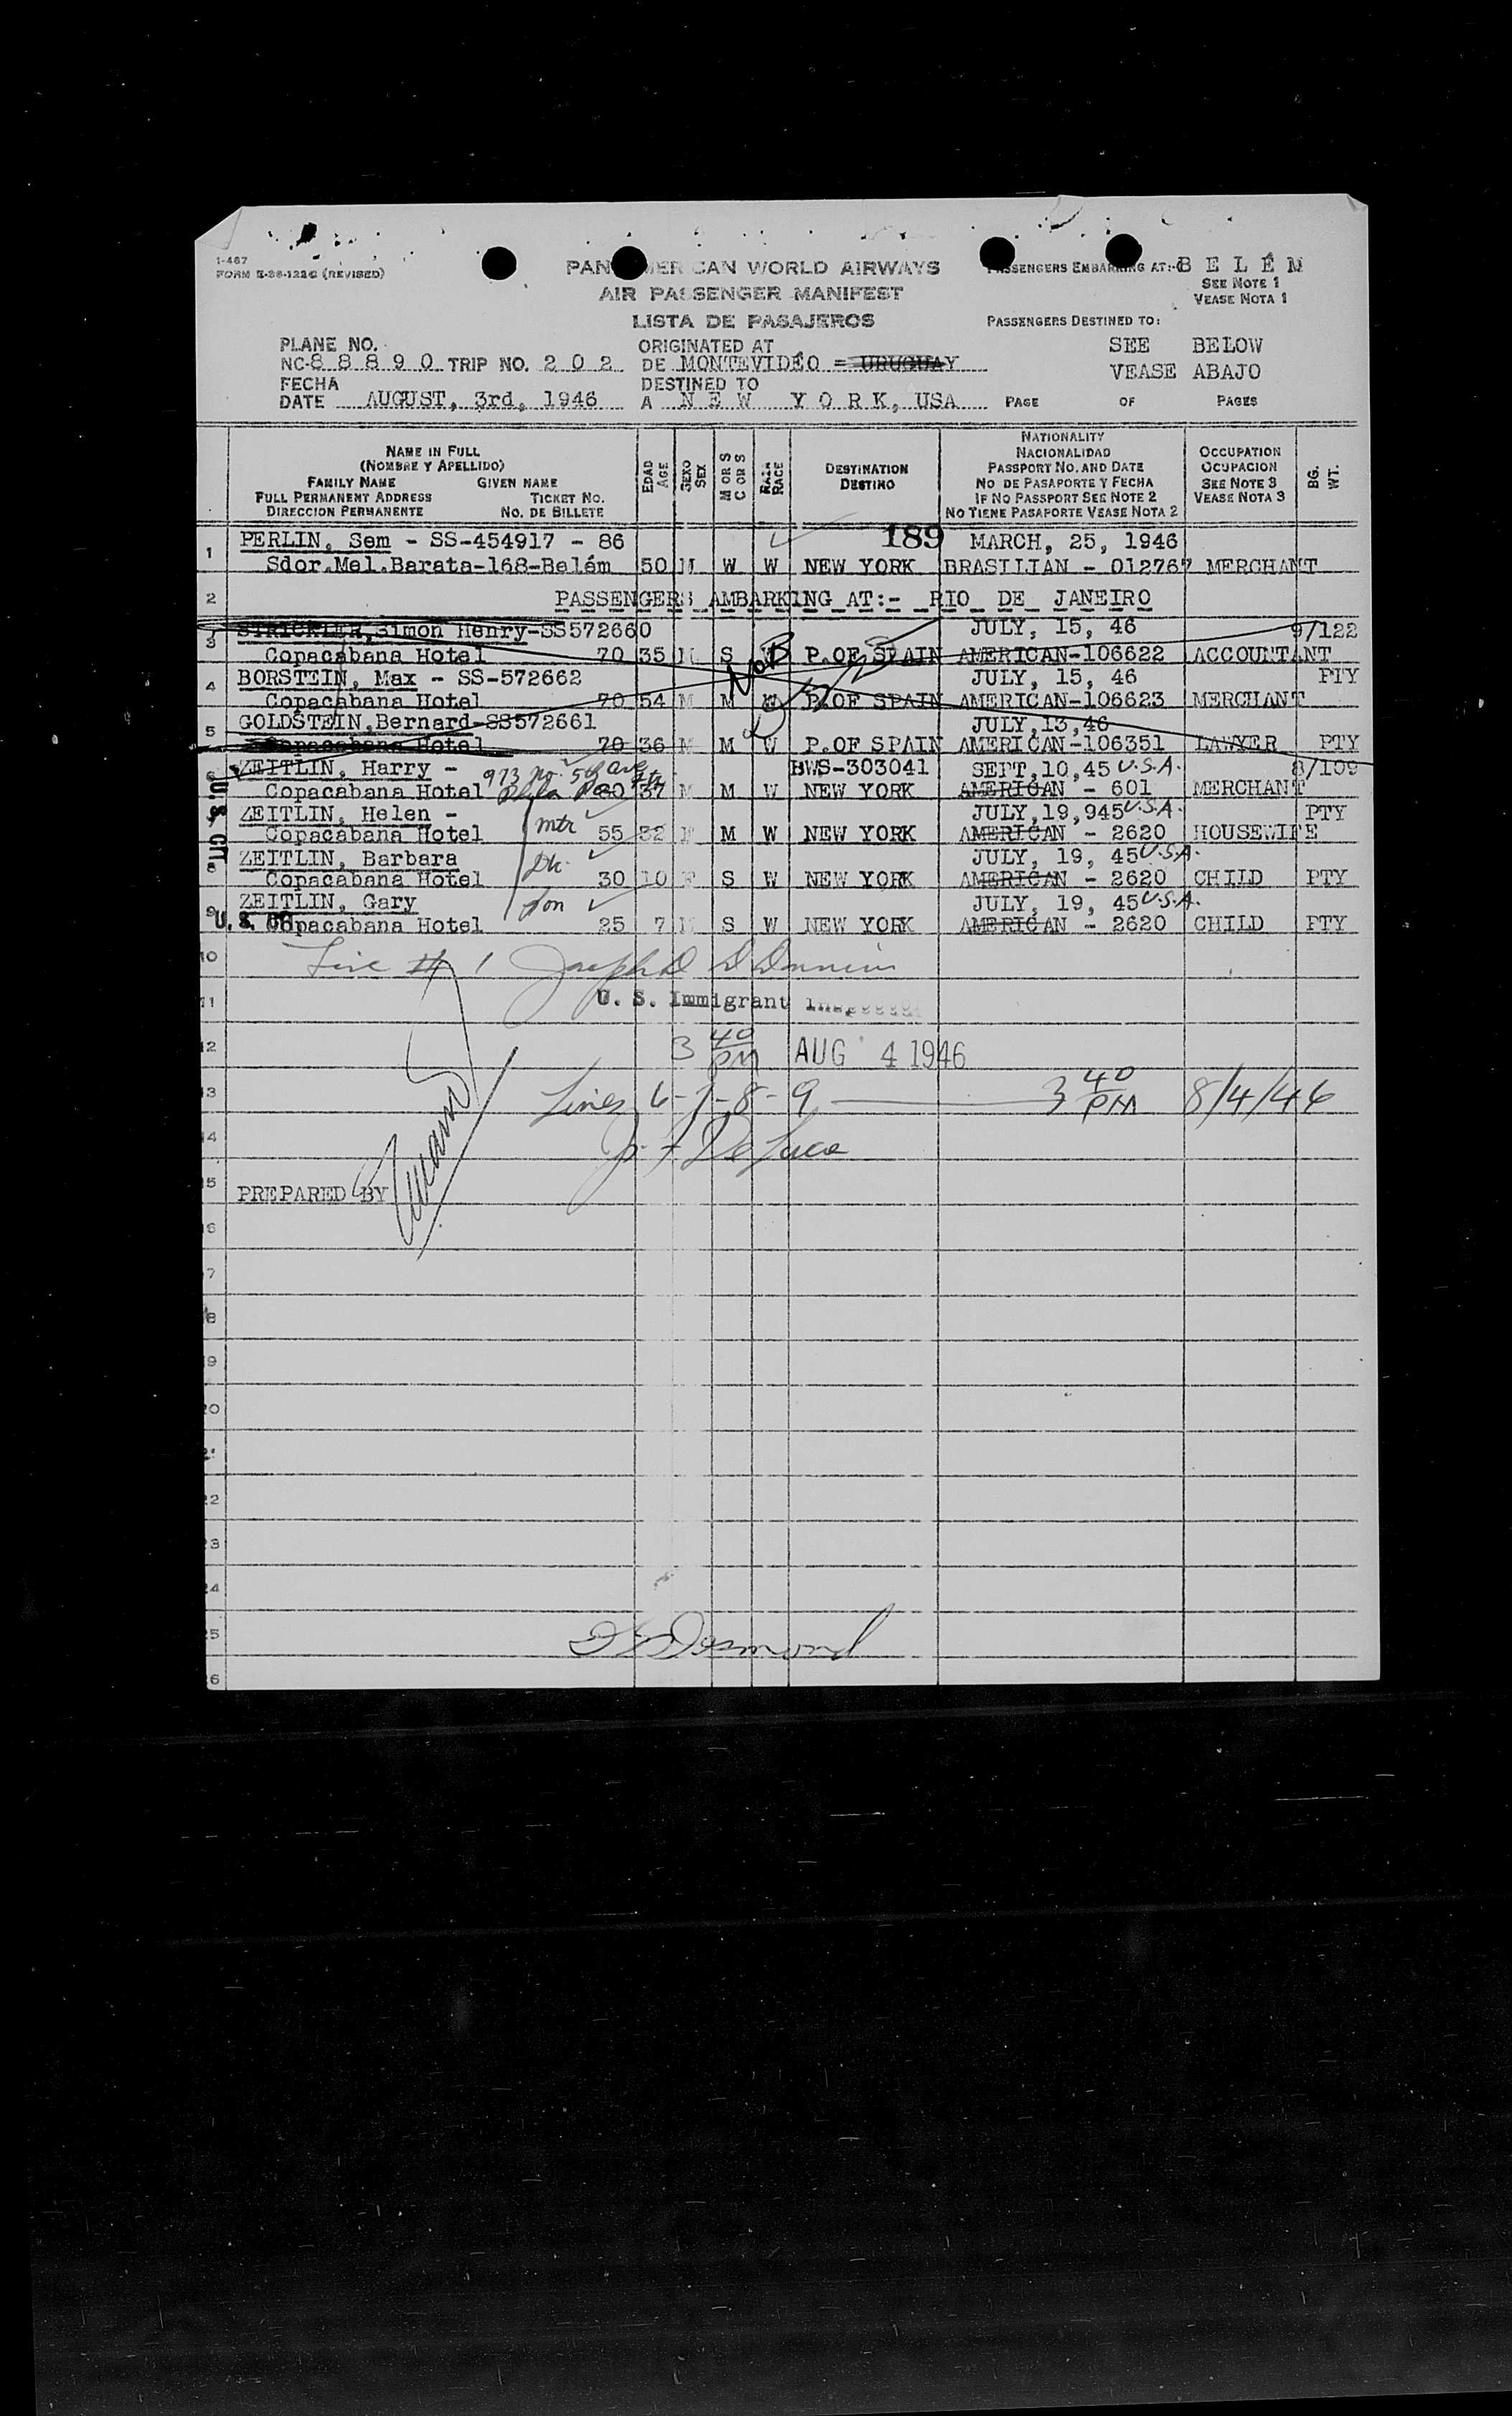 1-467
FORM E-36-122G (REVISED)
PAN AMERICAN WORLD AIRWAYS
AIR PASSENGER MANIFEST
LISTA DE PASAJEROS
PASSENGERS EMBARKING AT:- B E L É M
SEE NOTE 1
VEASE NOTA 1
PASSENGERS DESTINED TO:
SEE BELOW
VEASE ABAJO
PLANE NO.
NC-8 8 8 9 0 TRIP NO. 2 0 2
FECHA
DATE AUGUST, 3rd, 1946
ORIGINATED AT
DE MONTEVIDÉO = URUGUAY
DESTINED TO
A N E W Y O R K, USA
PAGE OF PAGES
NAME IN FULL
(NOMBRE Y APELLIDO)
FAMILY NAME GIVEN NAME
FULL PERMANENT ADDRESS TICKET NO.
DIRECCION PERMANENTE NO. DE BILLETE
EDAD
AGE
SEXO
SEX
M OR S
C OR S
RAZA
RACE
DESTINATION
DESTINO
NATIONALITY
NACIONALIDAD
PASSPORT NO. AND DATE
NO DE PASAPORTE Y FECHA
IF NO PASSPORT SEE NOTE 2
NO TIENE PASAPORTE VEASE NOTA 2
OCCUPATION
OCUPACION
SEE NOTE 3
VEASE NOTA 3
BG.
WT.
1 PERLIN, Sem - SS-454917 - 86 189 MARCH, 25, 1946
Sdor.Mel.Barata-168-Belém 50 M W W NEW YORK BRASILIAN - 012767 MERCHANT
2 PASSENGERS AMBARKING AT:- RIO DE JANEIRO
3 STRICKLER, Simon Henry-SS572660 JULY, 15, 46 9/122
Copacabana Hotel 70 35 M S W P.OF SPAIN AMERICAN-106622 ACCOUNTANT
NOB
4 BORSTEIN, Max - SS-572662 JULY, 15, 46 PTY
Copacabana Hotel 70 54 M M W P.OF SPAIN AMERICAN-106623 MERCHANT
5 GOLDSTEIN, Bernard-SS572661 JULY,13,46
Copacabana Hotel 70 36 M M W P.OF SPAIN AMERICAN-106351 LAWYER PTY
6 ZEITLIN, Harry - 973 No. 5th ave BWS-303041 SEPT,10,45 U.S.A. 8/109
Copacabana Hotel Phila Pa 80 37 M M W NEW YORK AMERICAN - 601 MERCHANT
U. S. CIT.
ZEITLIN, Helen - JULY,19,945 U.S.A. PTY
Copacabana Hotel mtr 55 32 F M W NEW YORK AMERICAN - 2620 HOUSEWIFE
8 ZEITLIN, Barbara JULY, 19, 45 U.S.A.
Copacabana Hotel 30 10 F S W NEW YORK AMERICAN - 2620 CHILD PTY
9 ZEITLIN, Gary JULY, 19, 45 U.S.A.
U. S. Copacabana Hotel son 25 7 M S W NEW YORK AMERICAN - 2620 CHILD PTY
10 Line # 1 Joseph D
11 U. S. Immigrant Inspector
12 3 40 PM AUG 4 1946
13 Lines 6-7-8-9 3 40 PM 8/4/46
14
15 PREPARED BY
16
17
18
19
20
21
22
23
24
25
26